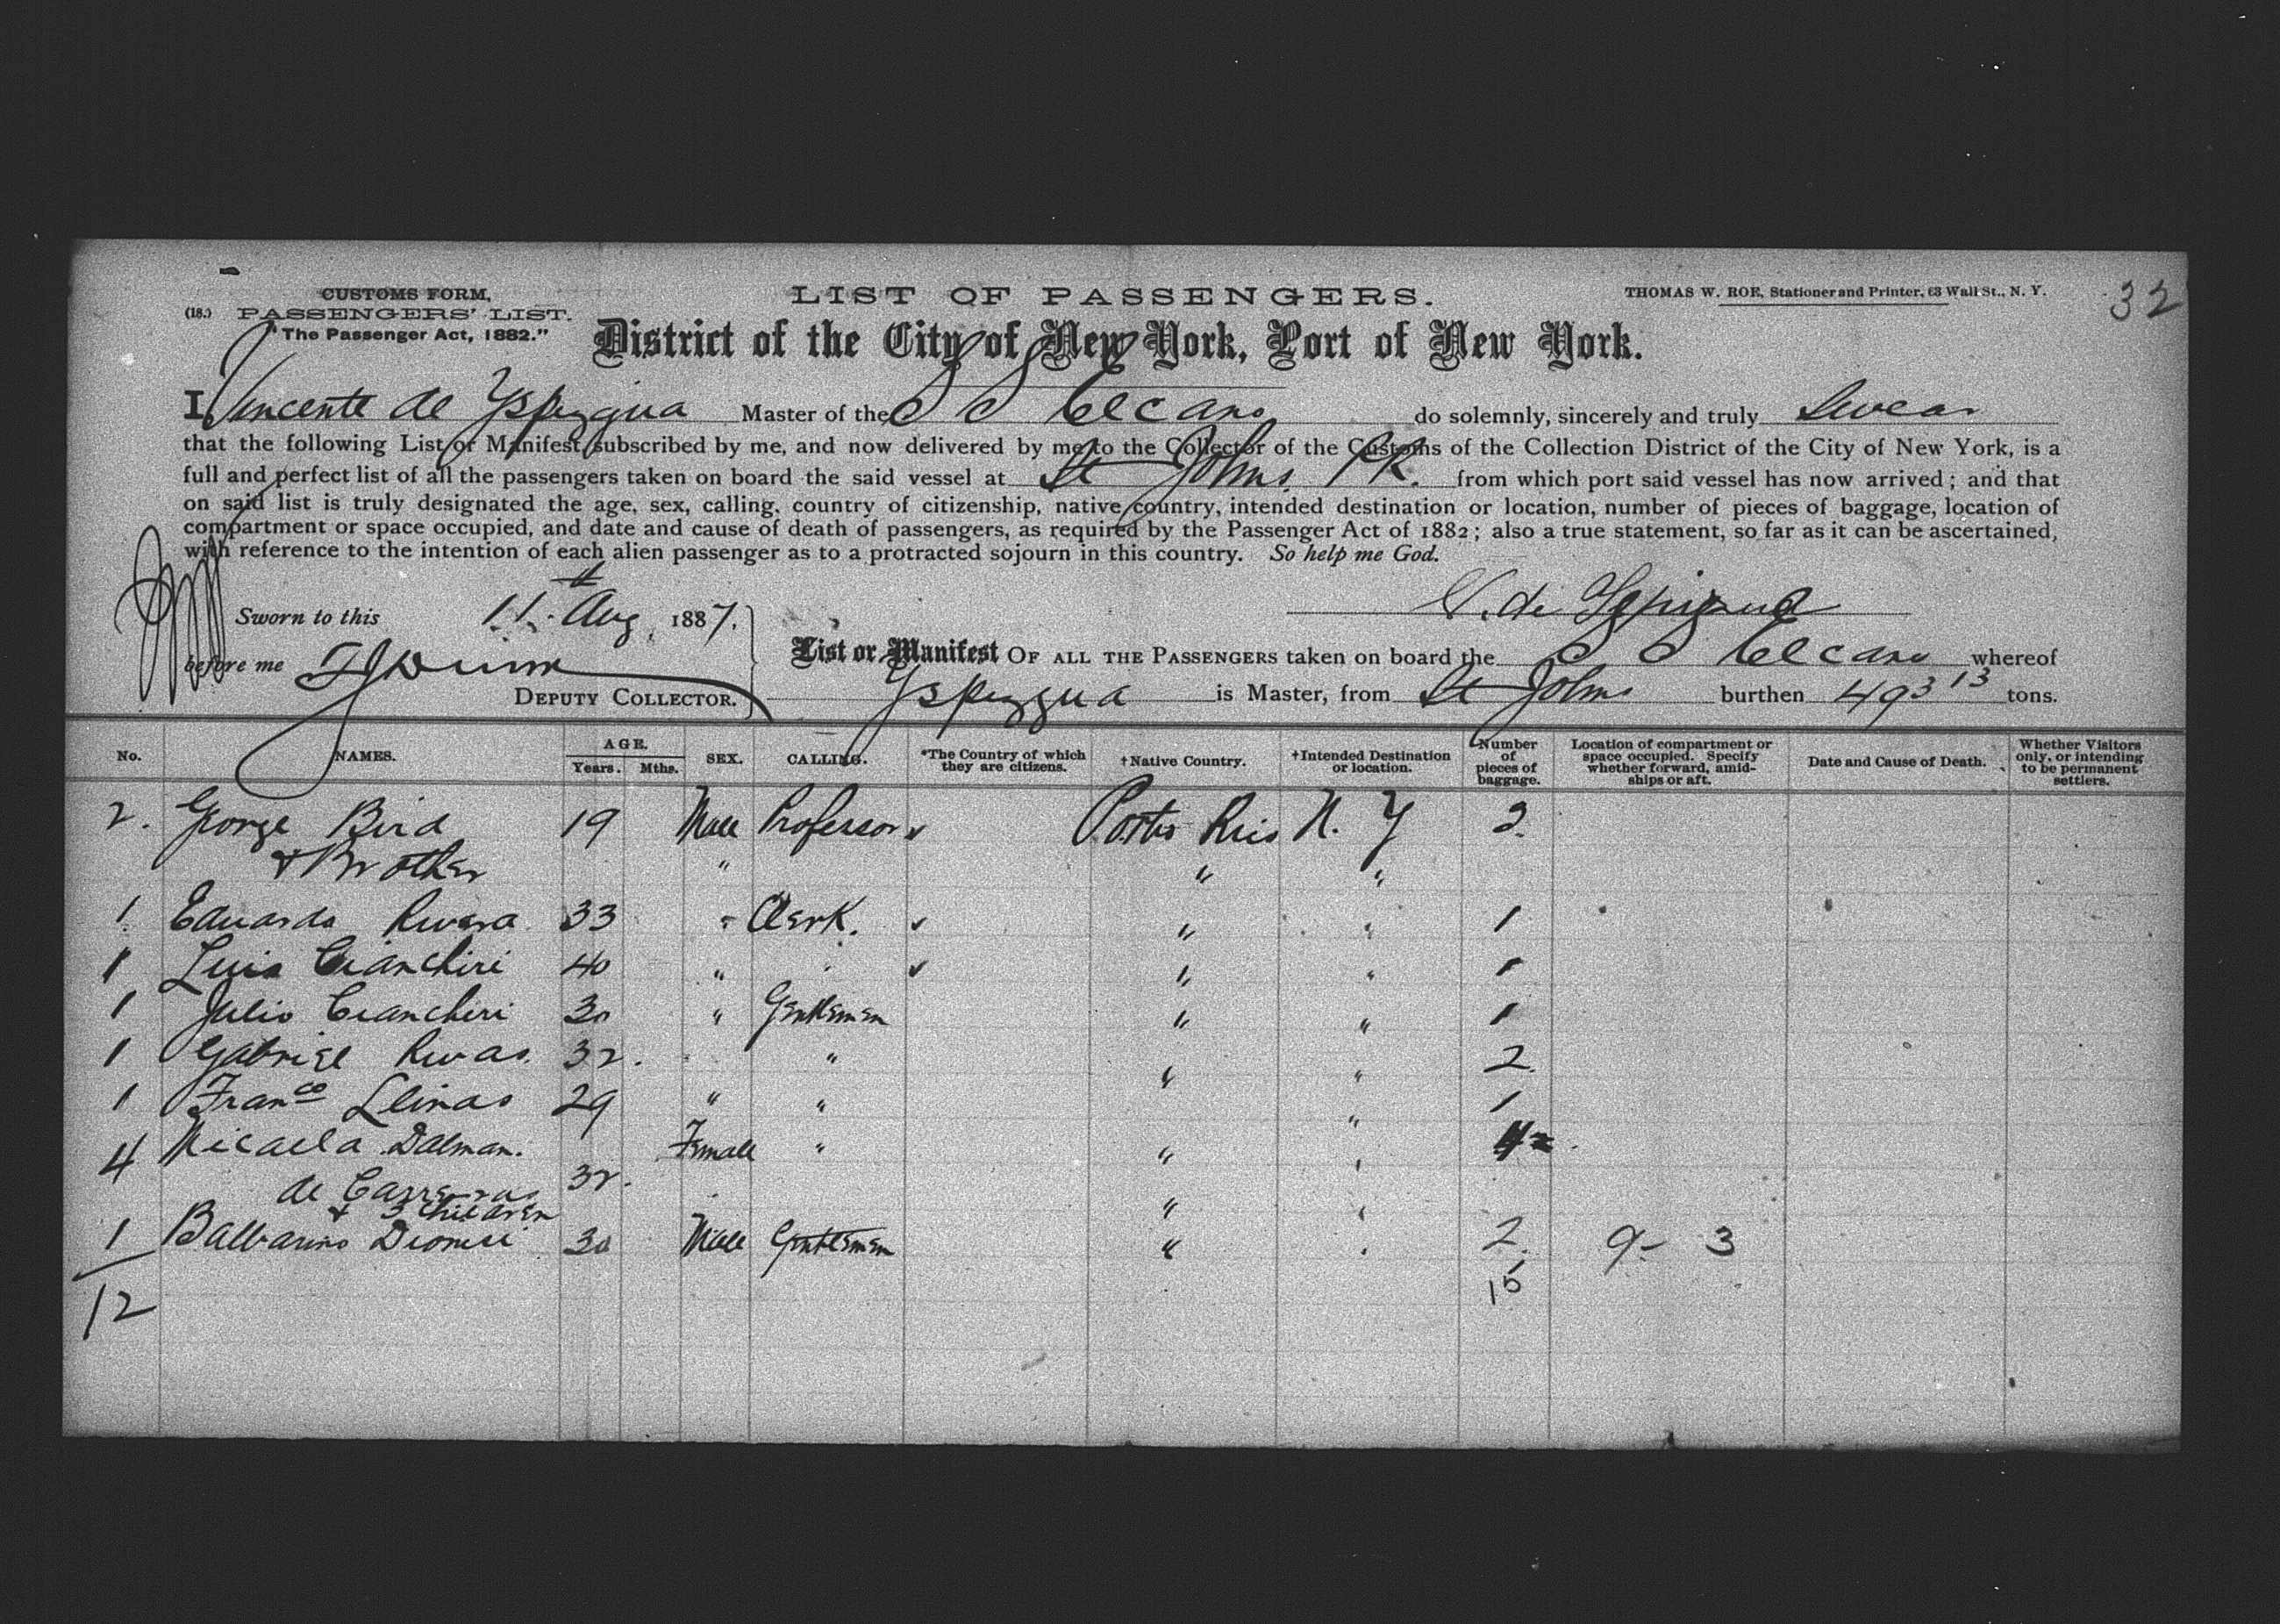 32
CUSTOMS FORM,
(18.) PASSENGERS' LIST.
"The Passenger Act, 1882."
LIST OF PASSENGERS.
THOMAS W. ROE, Stationer and Printer, 63 Wall St., N. Y.
District of the City of New York, Port of New York.
I, Vincente de Master of the S S Elcano do solemnly, sincerely and truly swear
that the following List or Manifest, subscribed by me, and now delivered by me to the Collector of the Customs of the Collection District of the City of New York, is a
full and perfect list of all the passengers taken on board the said vessel at St Johns. PR. from which port said vessel has now arrived; and that
on said list is truly designated the age, sex, calling, country of citizenship, native country, intended destination or location, number of pieces of baggage, location of
compartment or space occupied, and date and cause of death of passengers, as required by the Passenger Act of 1882; also a true statement, so far as it can be ascertained,
with reference to the intention of each alien passenger as to a protracted sojourn in this country. So help me God.
V. de
Sworn to this 11th Aug 1887.
before me
DEPUTY COLLECTOR.
List or Manifest OF ALL THE PASSENGERS taken on board the S S Elcano whereof
is Master, from St Johns burthen 493 13 tons.
No. NAMES. AGE. Years. Mths. SEX. CALLING. *The Country of which they are citizens. †Native Country. †Intended Destination or location. Number of pieces of baggage. Location of compartment or space occupied. Specify whether forward, amidships or aft. Date and Cause of Death. Whether Visitors only, or intending to be permanent settlers.
2. George Bird 19 Male Professor ✓ Porto Rico N. Y 2.
+ Brother " " "
1. Eduardo Rivera 33 " Clerk. ✓ " " 1
1 Luis Cianchini 40 " " ✓ " " 1
1 Julio Cianchini 30 " Gentlemen " " 1
1 Gabriel Rivas. 32. " " " " 2.
1 Franco Llinas 29 " " " 1
4 Micaela Dalman. Female " " "
de Carreras 32. " "
+ 3 children
1 Balbarino Dionisi 30 Male Gentlemen " " 2. 9- 3
12 15